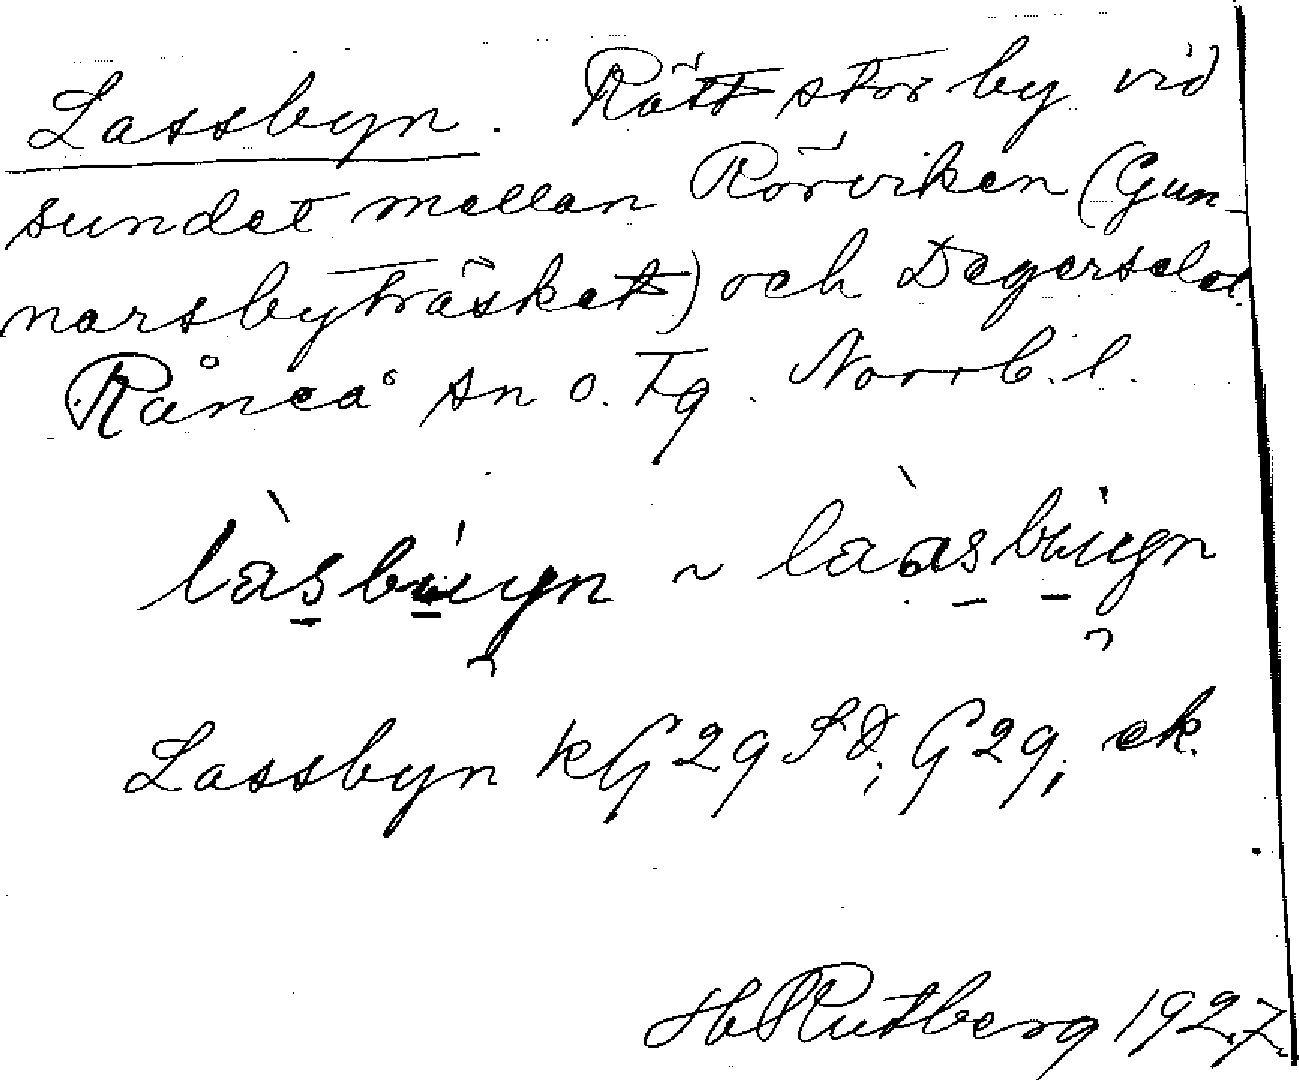 Lassbyn. Rätt stor by vid
sundet mellan Rörviken (Gun-
narsbyträsket) och Degerselet.
Råneå sn o. tg. Norrb. l.
làsbúyn ~ làasbúyn
Lassbyn kG 29 SO; G 29; ek.
H Rutberg 1927